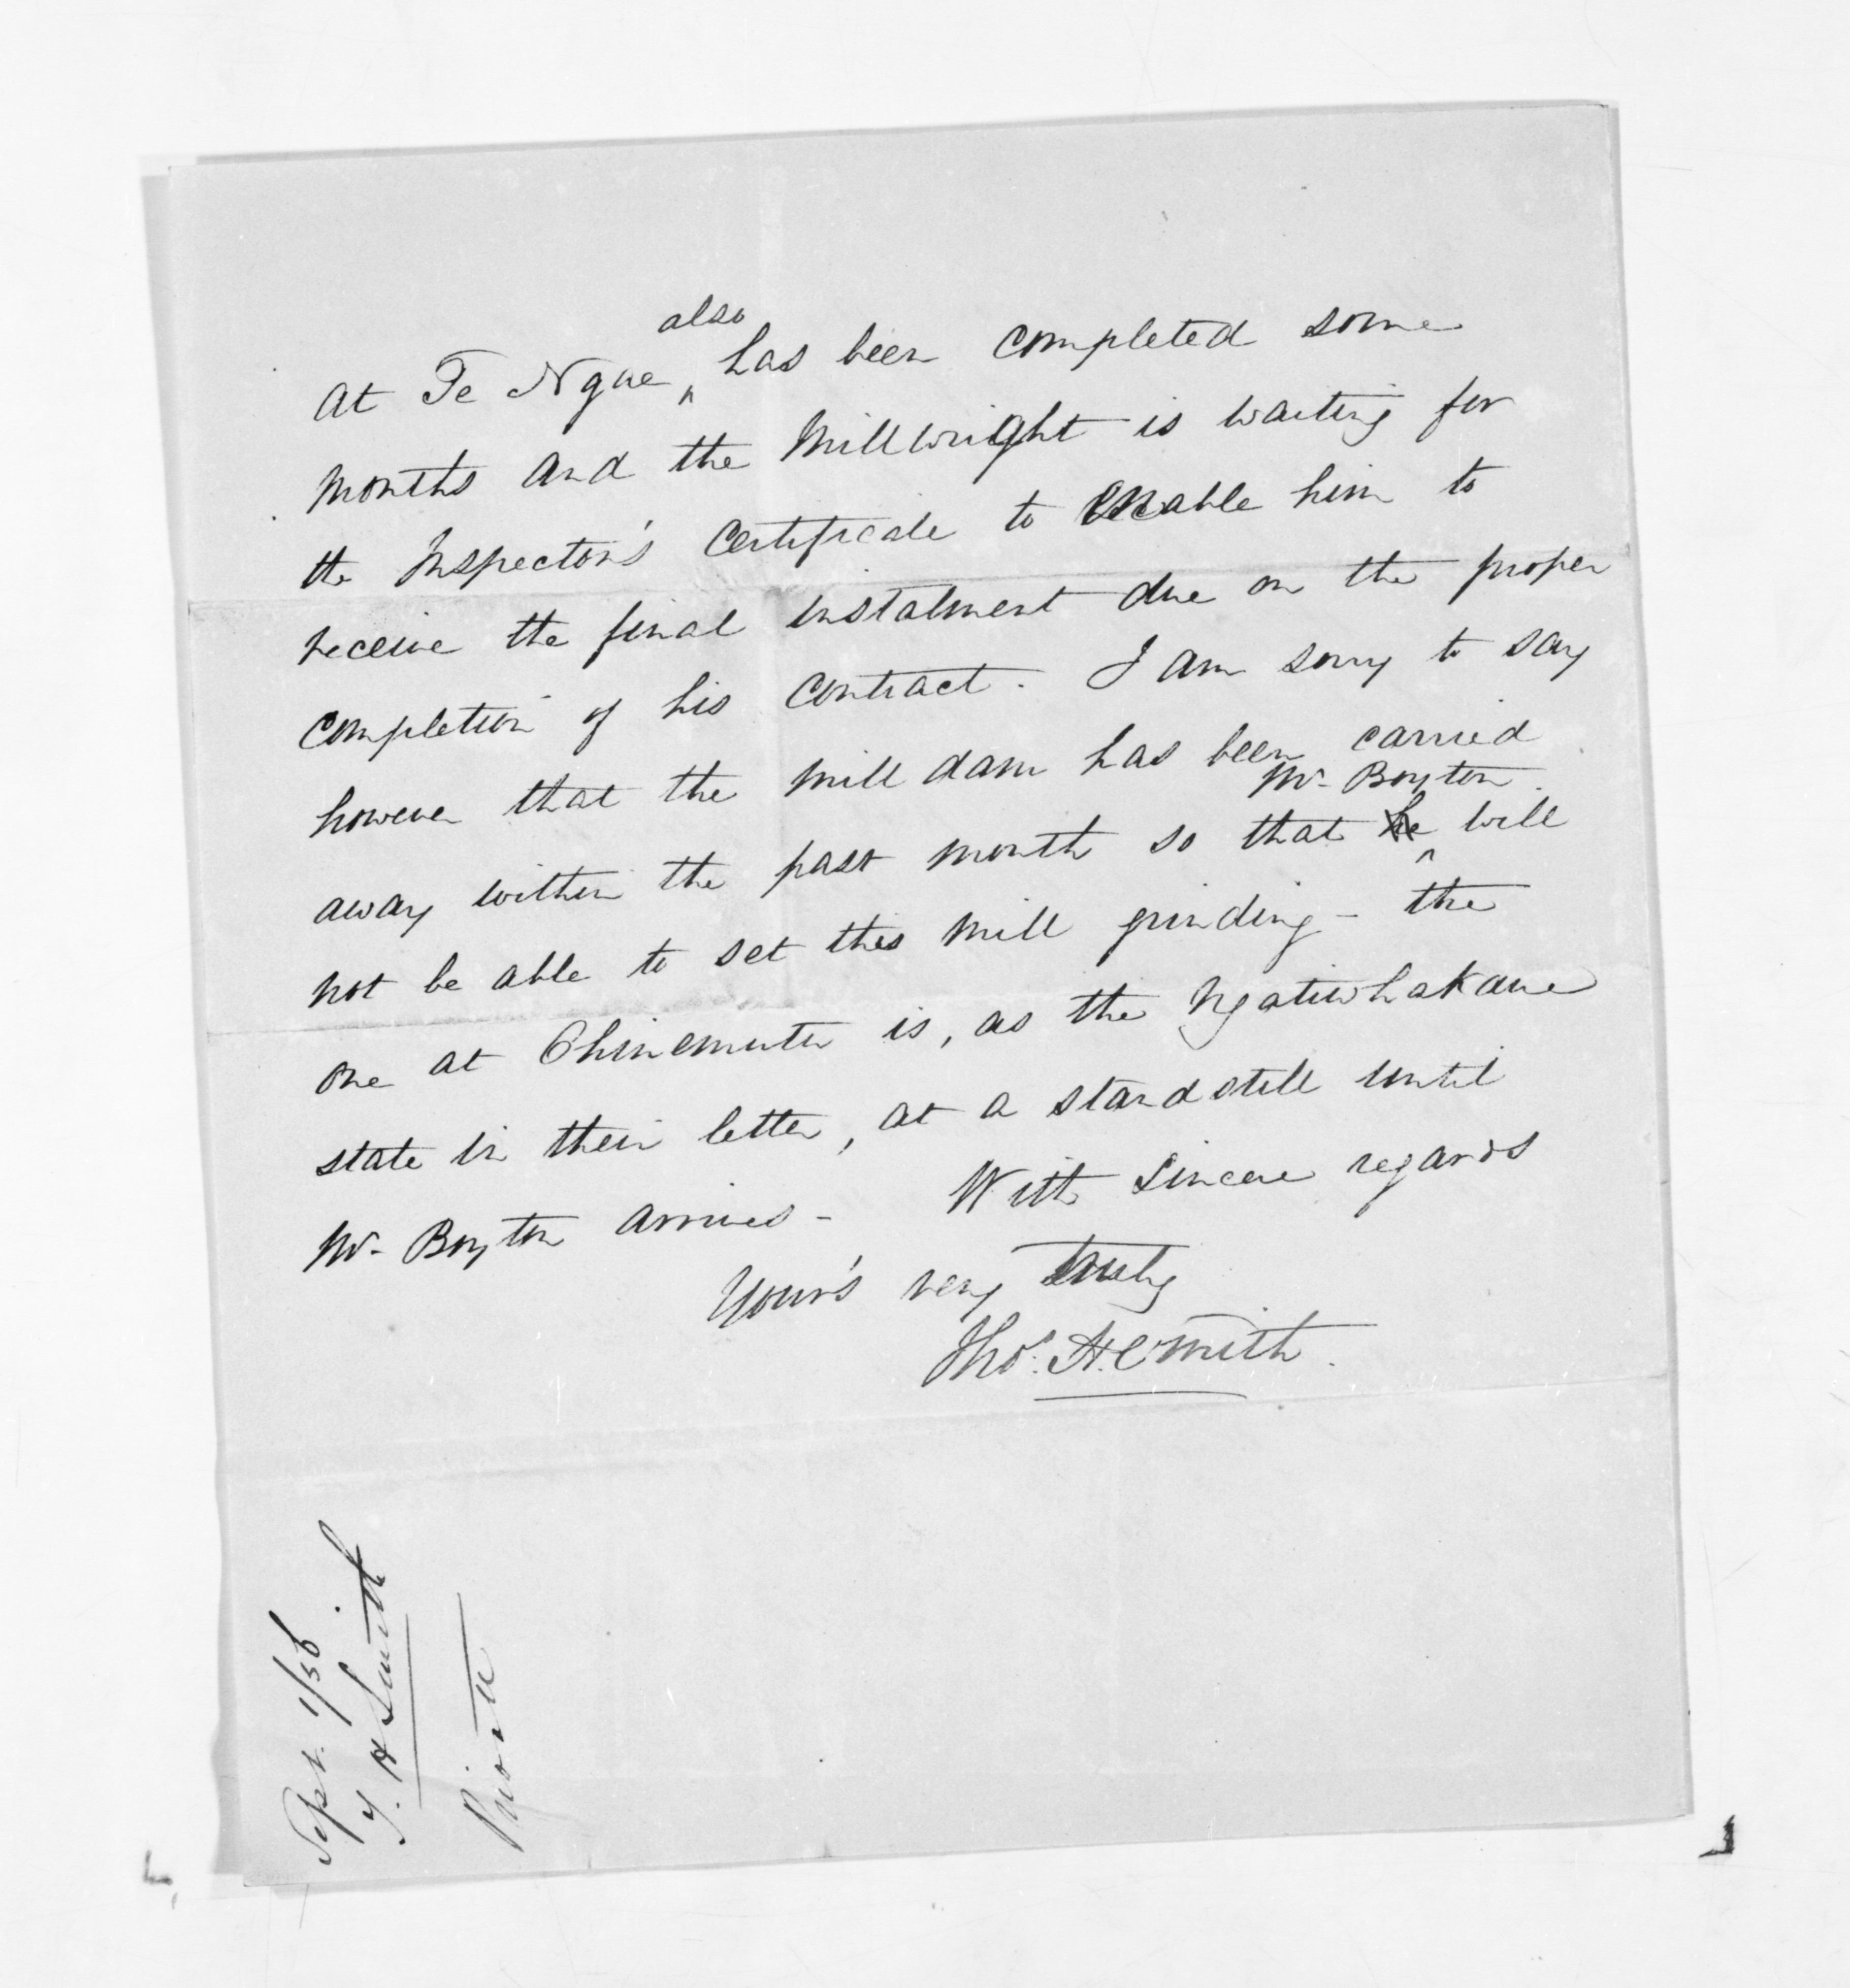 at Te Ngae also has been completed some
months and the Millwright is waiting for
the Inspector's Certificate to enable him to
receive the final instalment due on the proper
completion of his contract. I am sorry to say
however that the mill dam has been carried
away within the past month so that he Mr Boyton will
not be able to set this mill grinding - the
one at Ohinemutu is, as the Ngatiwhakaue
state in their letter, at a standstill until
Mr Boyton arrives - With sincere regards
Your's very truly
Thos. H. Smith.
Sepr. 1/56.
T. H Smith
Private